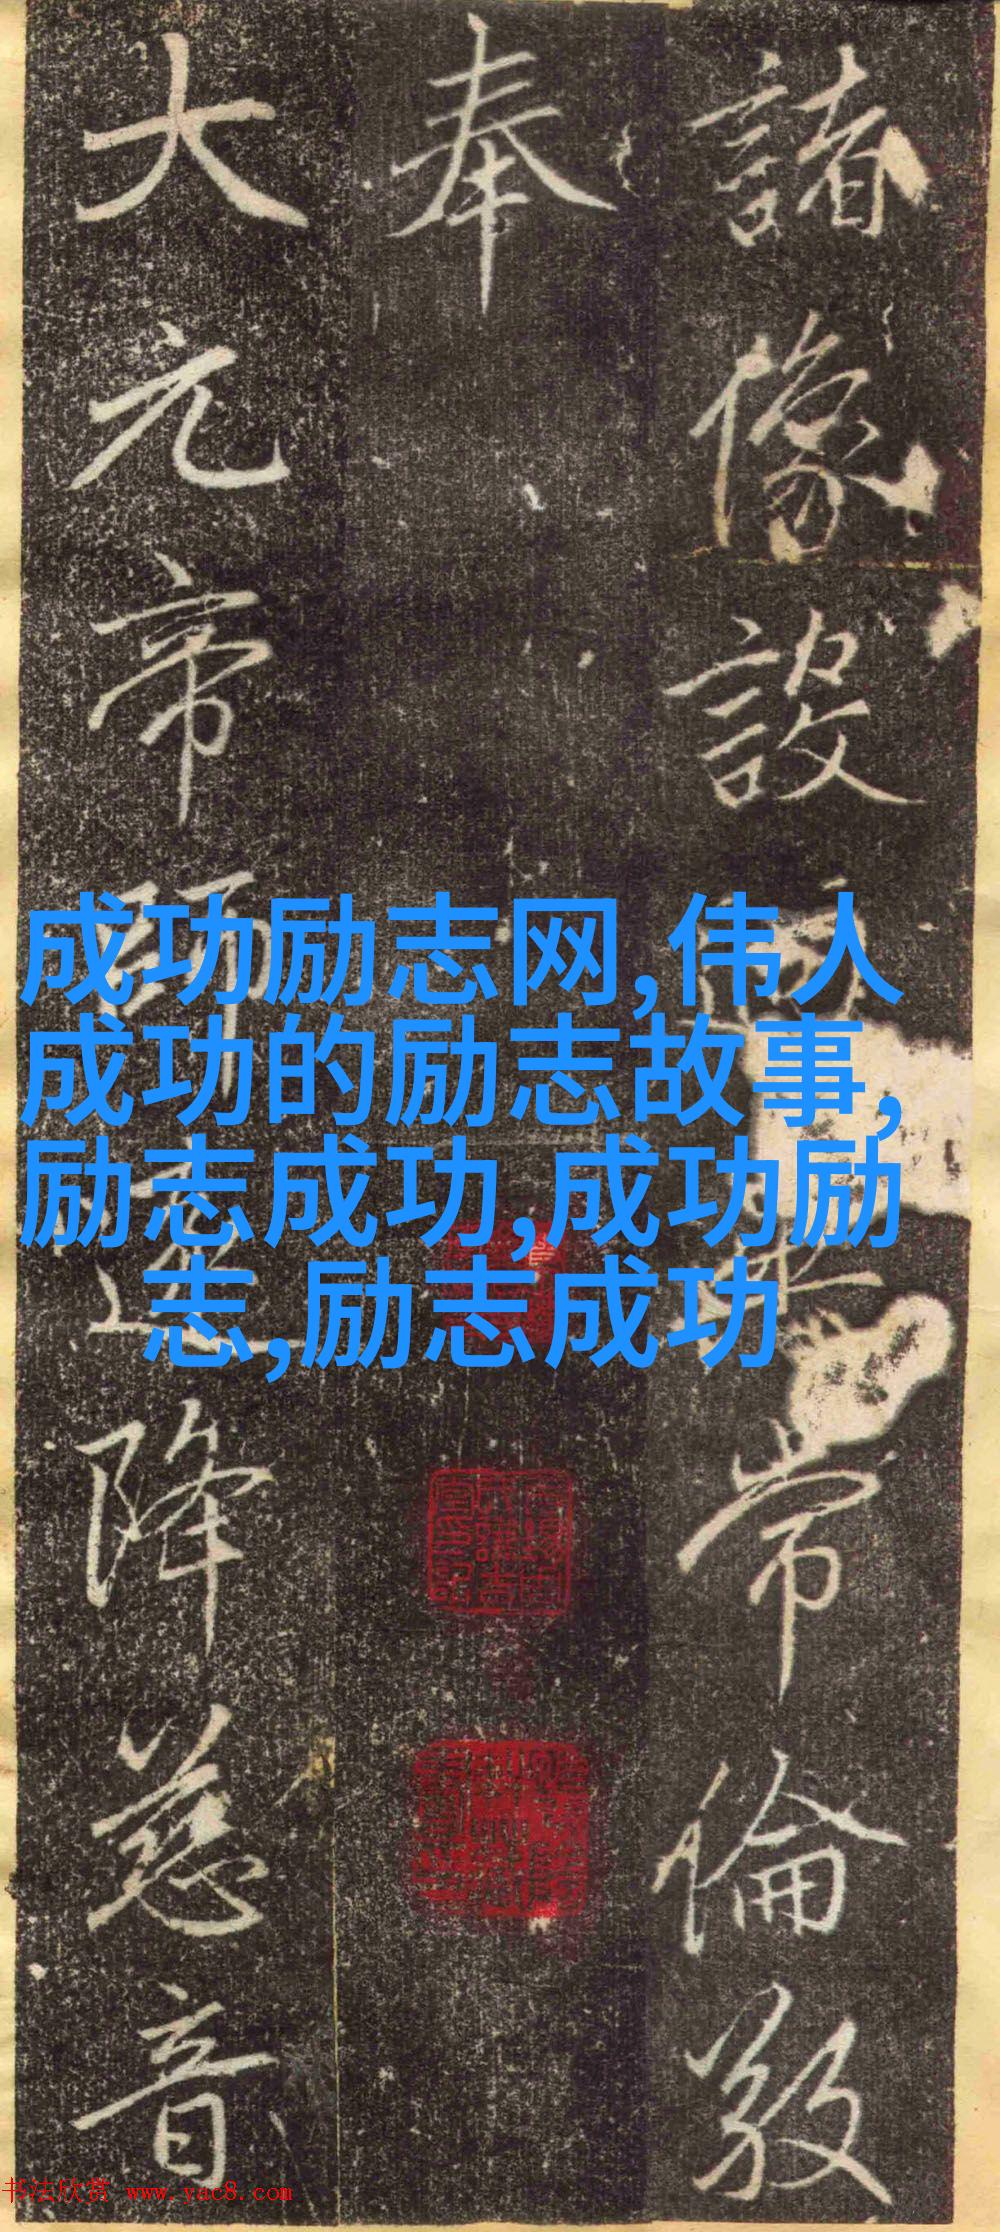 諸像設
常倫敩
奉
大元帝師
降慈音
成功励志网,伟人
成功的励志故事,
励志成功,成功励
志,励志成功
书法欣赏 www.yac8.com